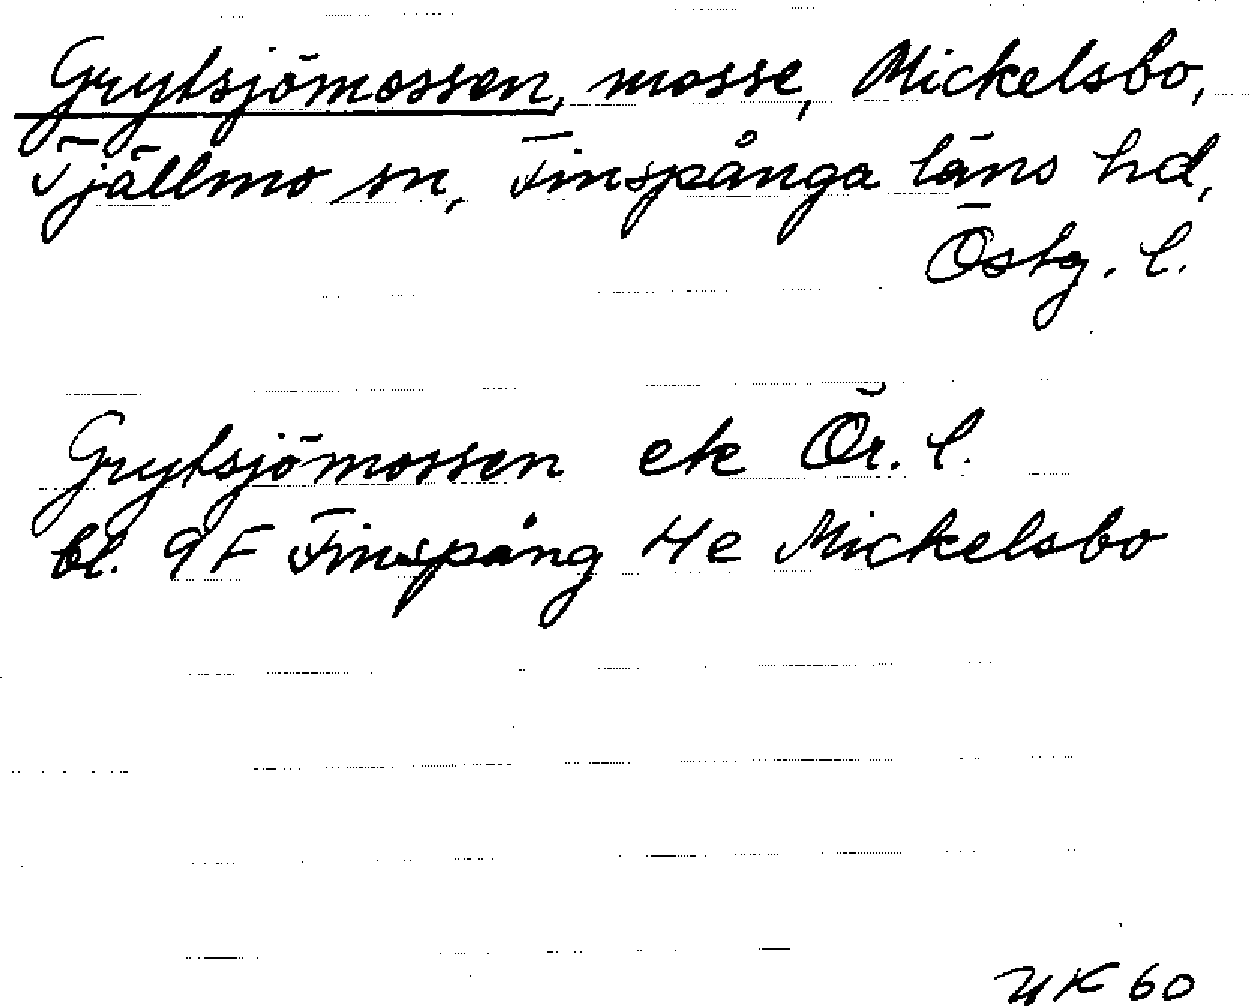 Grytsjömossen, mosse, Mickelsbo,
Tjällmo sn, Finspånga läns hd,
Östg. l.
Grytsjömossen ek Ör. l.
bl. 9F Finspång 4e Mickelsbo
UK 60